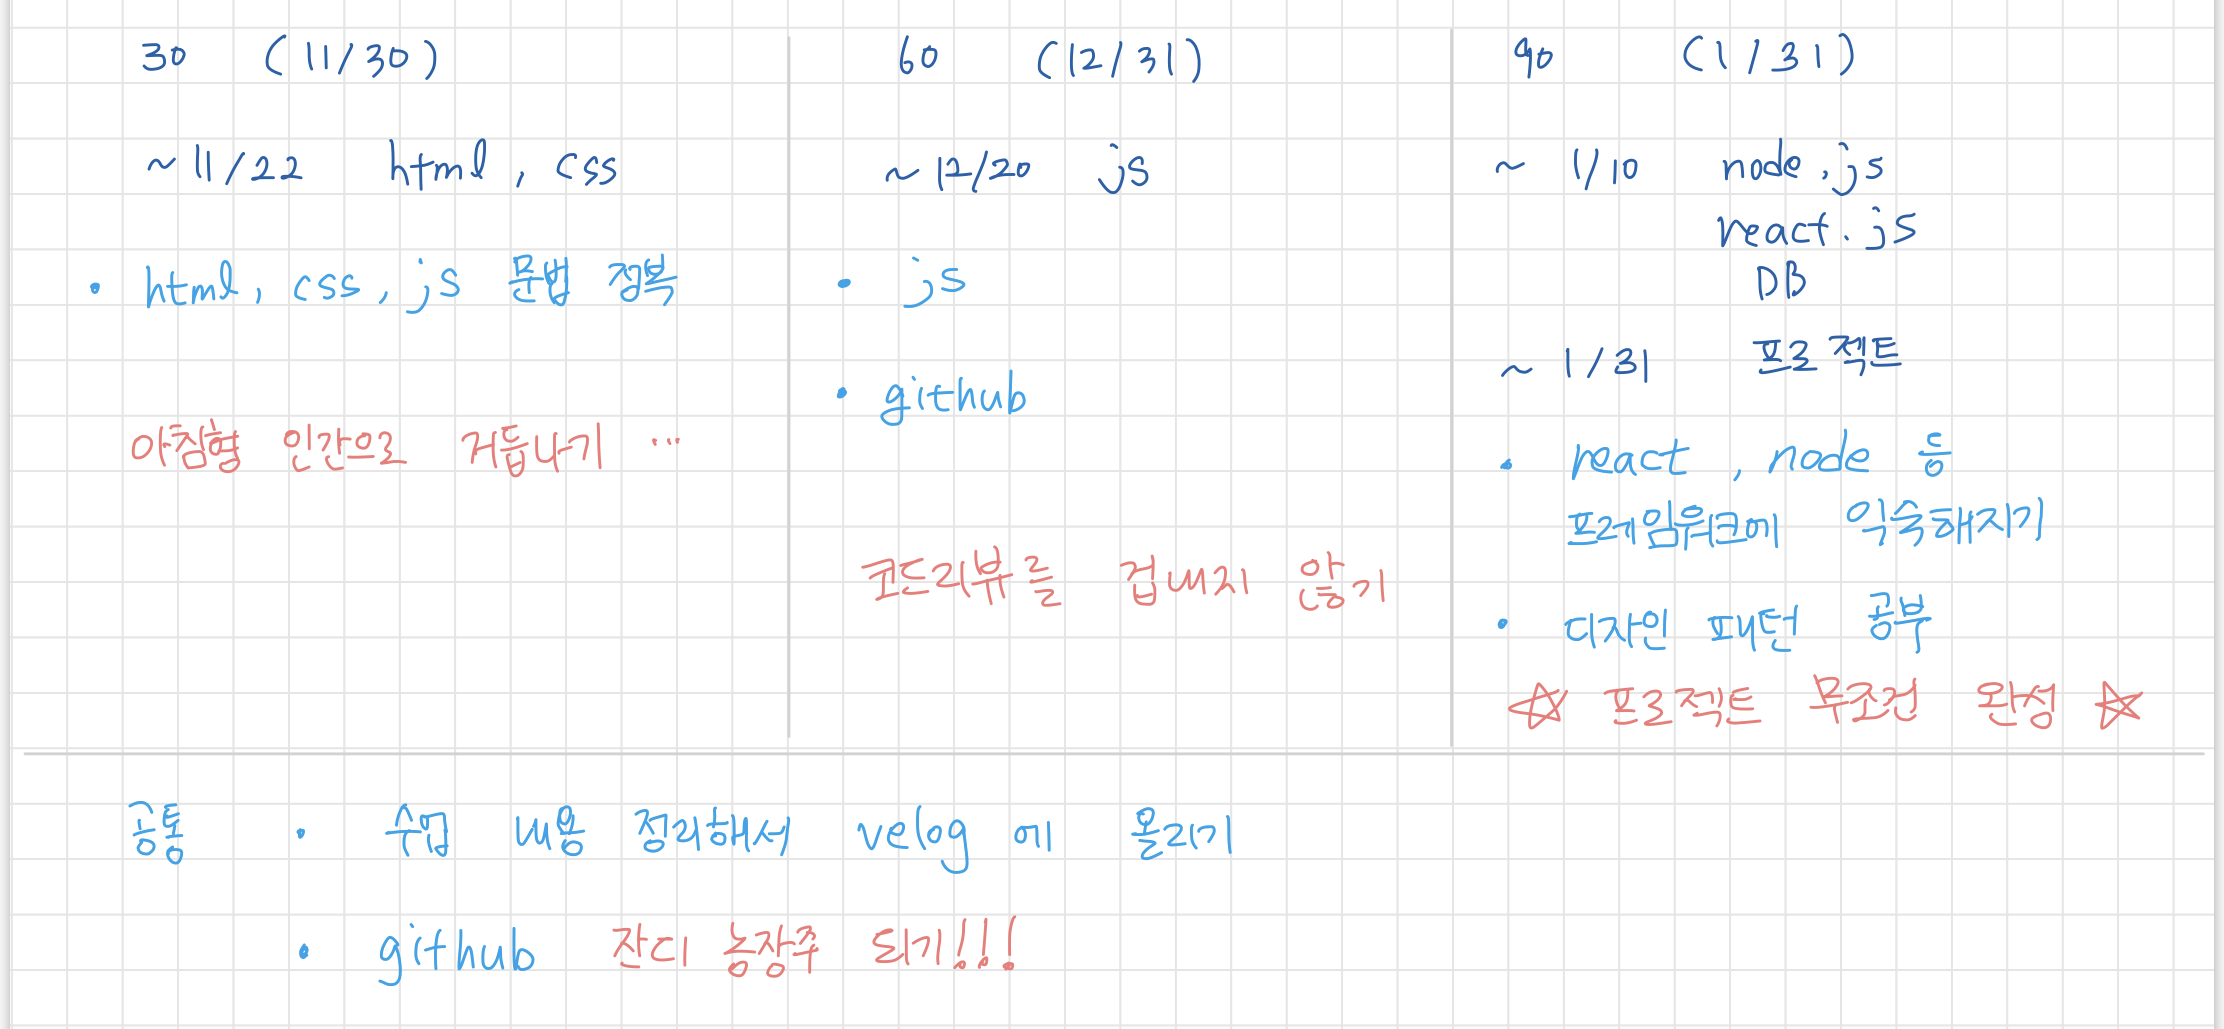 30 (11/30)
~11/22 html, css
• html, css, js 문법 정복
아침형 인간으로 거듭나기 …
60 (12/31)
~12/20 js
• js
• github
코드리뷰를 겁내지 않기
90 (1/31)
~ 1/10 node.js
react.js
DB
~ 1/31 프로젝트
• react, node 등
프레임워크에 익숙해지기
• 디자인 패턴 공부
☆ 프로젝트 무조건 완성 ☆
공통 • 수업 내용 정리해서 velog에 올리기
• github 잔디 농장주 되기!!!